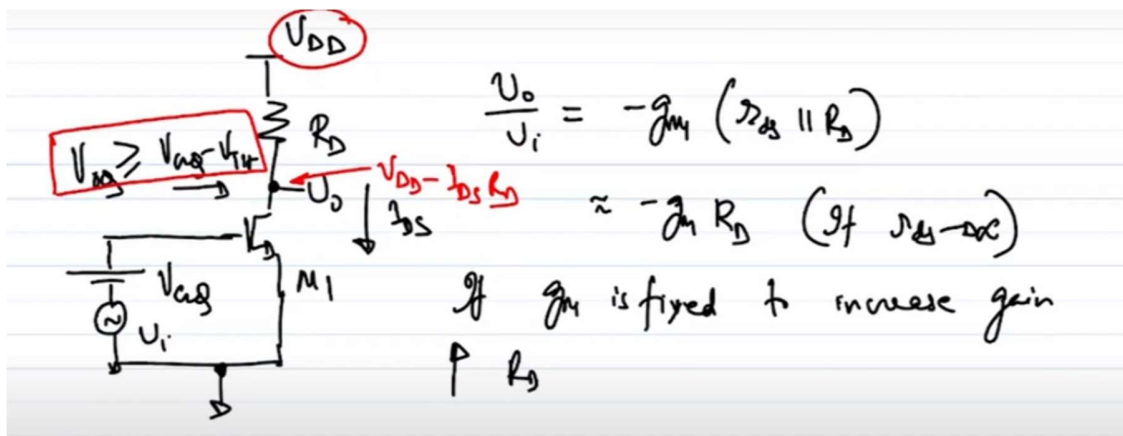 V_DD
R_D
V_DSQ ≥ V_GSQ - V_TH
V_DD - I_DS R_D
V_o
I_DS
V_GSQ
M1
V_i
V_o/V_i = -g_m1 (r_ds || R_D)
≈ -g_m R_D (If r_ds → ∝)
If g_m is fixed to increase gain
↑ R_D